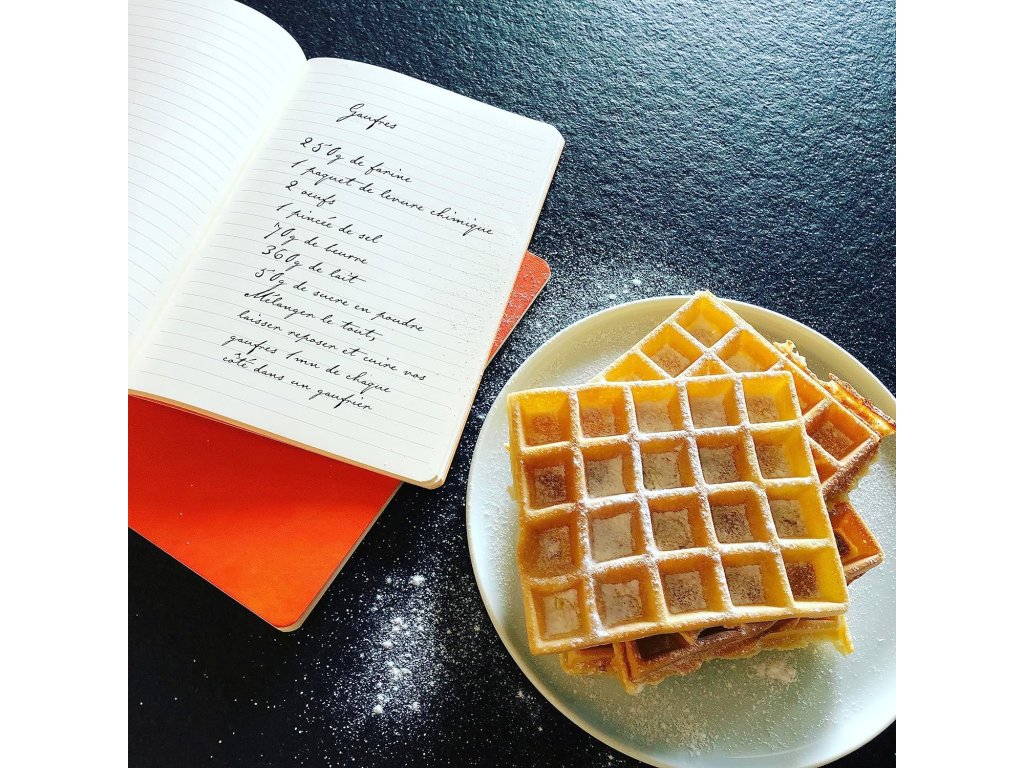 Gaufres
250g de farine
1 paquet de levure chimique
2 oeufs
1 pincée de sel
70g de beurre
360g de lait
50g de sucre en poudre
Mélanger le tout,
laisser reposer et cuire vos
gaufres 1mn de chaque
côté dans un gaufrier